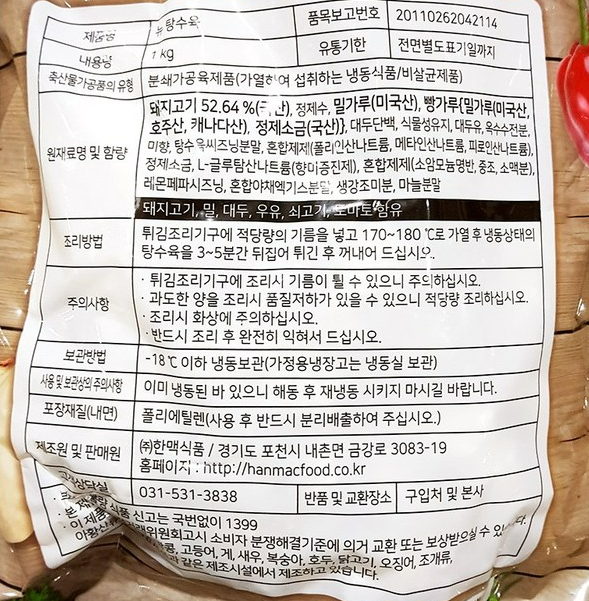 제품명 뉴 탕수육 품목보고번호 20110262042114
내용량 1 kg 유통기한 전면별도표기일까지
축산물가공품의 유형 분쇄가공육제품(가열하여 섭취하는 냉동식품/비살균제품)
원재료명 및 함량 돼지고기 52.64 %(국산), 정제수, 밀가루(미국산), 빵가루{밀가루(미국산,
호주산, 캐나다산), 정제소금(국산)}, 대두단백, 식물성유지, 대두유, 옥수수전분,
미향, 탕수육씨즈닝분말, 혼합제제(폴리인산나트륨, 메타인산나트륨, 피로인산나트륨),
정제소금, L-글루탐산나트륨(향미증진제), 혼합제제(소암모늄명반, 중조, 소맥분),
레몬페파시즈닝, 혼합야채엑기스분말, 생강조미분, 마늘분말
돼지고기, 밀, 대두, 우유, 쇠고기, 토마토 함유
조리방법 튀김조리기구에 적당량의 기름을 넣고 170~180 ℃로 가열 후 냉동상태의
탕수육을 3~5분간 뒤집어 튀긴 후 꺼내어 드십시오.
주의사항 · 튀김조리기구에 조리시 기름이 튈 수 있으니 주의하십시오.
· 과도한 양을 조리시 품질저하가 있을 수 있으니 적당량 조리하십시오.
· 조리시 화상에 주의하십시오.
· 반드시 조리 후 완전히 익혀서 드십시오.
보관방법 -18 ℃ 이하 냉동보관(가정용냉장고는 냉동실 보관)
사용 및 보관상의 주의사항 이미 냉동된 바 있으니 해동 후 재냉동 시키지 마시길 바랍니다.
포장재질(내면) 폴리에틸렌(사용 후 반드시 분리배출하여 주십시오.)
제조원 및 판매원 ㈜한맥식품 / 경기도 포천시 내촌면 금강로 3083-19
홈페이지 : http://hanmacfood.co.kr
고객상담실 031-531-3838 반품 및 교환장소 구입처 및 본사
· 이 제품 식품 신고는 국번없이 1399
위원회고시 소비자 분쟁해결기준에 의거 교환 또는 보상받으실 수 있
고등어, 게, 새우, 복숭아, 호두, 닭고기, 오징어, 조개류,
같은 제조시설에서 제조하고 있습니다.